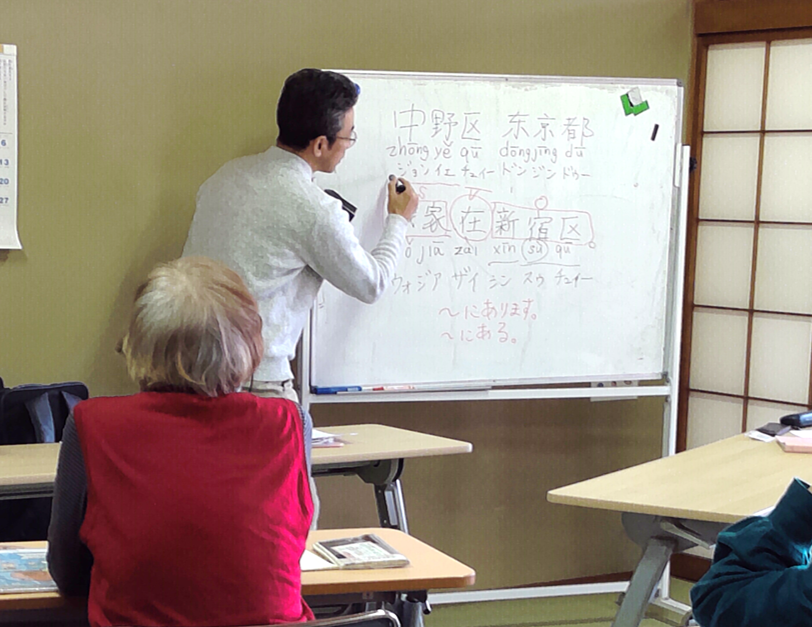 中野区 东京都
zhōng yě qū dōng jīng dū
ジョン イエ チュイー ドン ジン ドゥー
S V O
家 在 新 宿 区
ǒ jiā zài xīn sù qū
ウォ ジア ザイ シン スゥ チュイー
～にあります。
～にある。
6
13
20
27